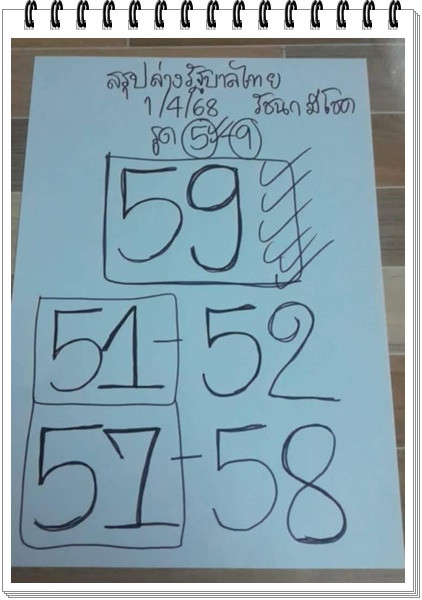 สรุปล่างรัฐบาลไทย
1/4/68 รัชนก มีโชค
รูด 5-9
59
51-52
57-58